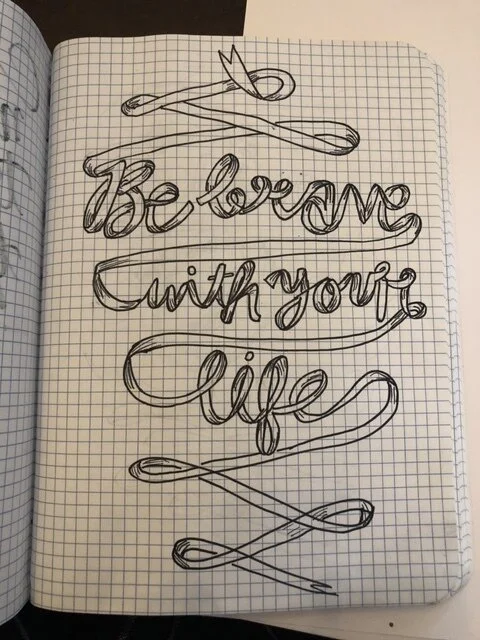 Be brave
with your
life